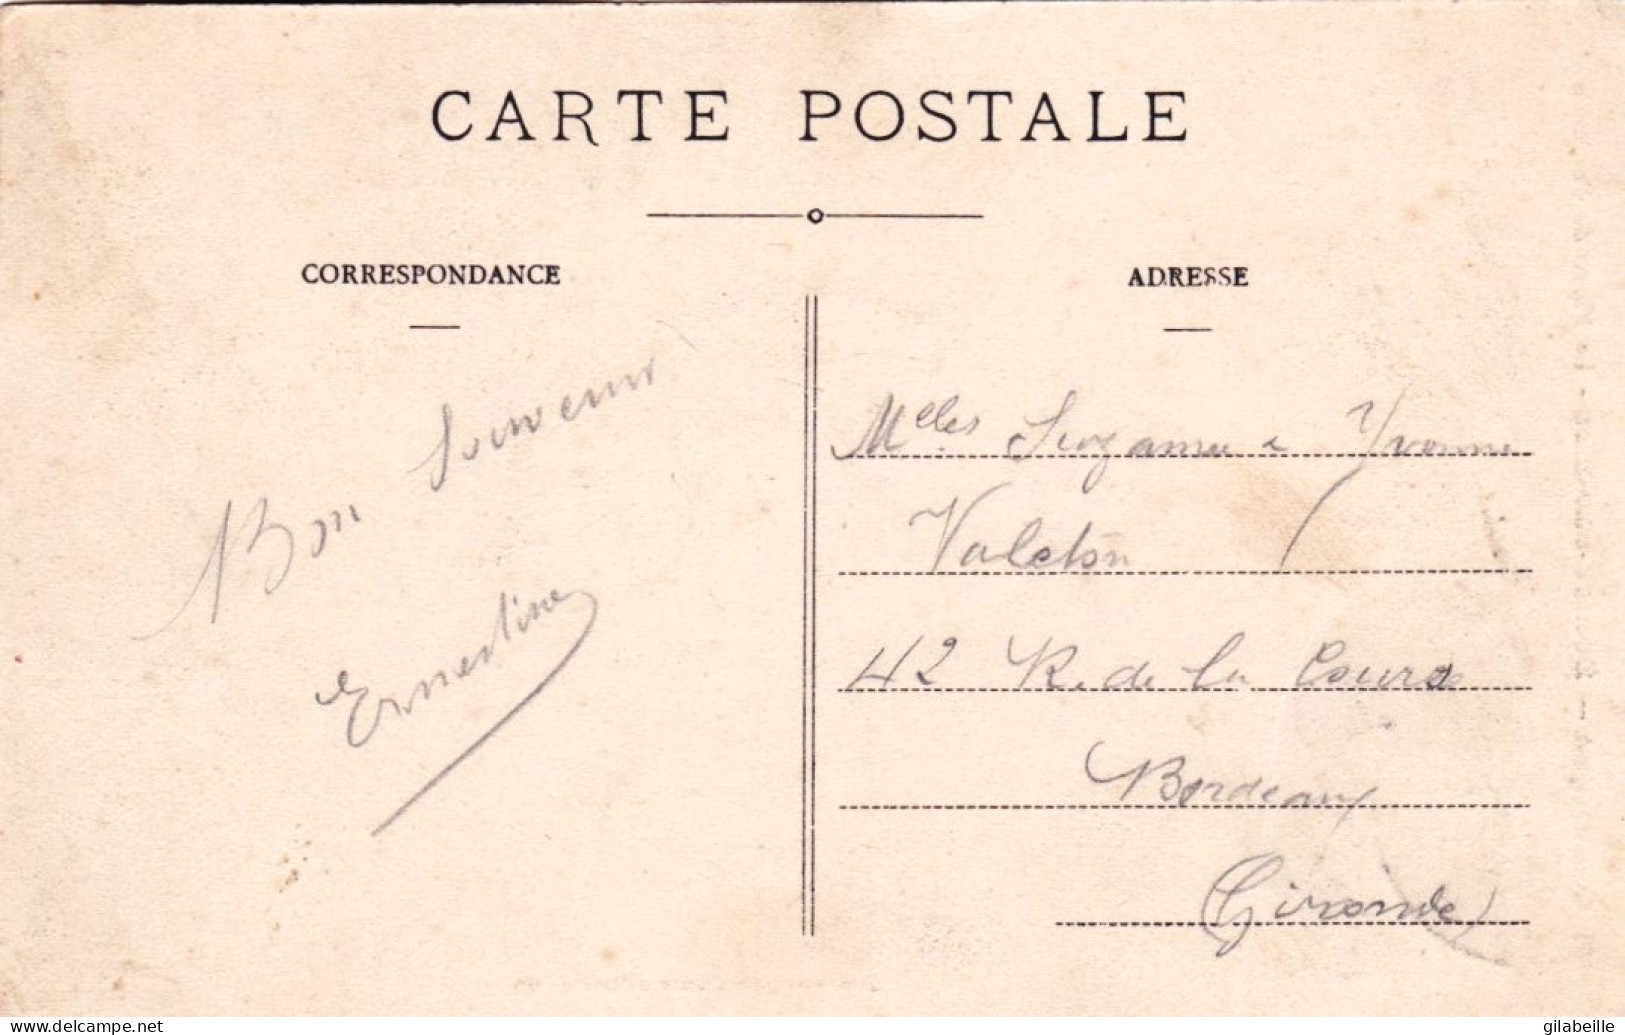 CARTE POSTALE
CORRESPONDANCE
ADRESSE
Bon Souvenir
Ernestine
Mlles Suzanne & Yvonne
Valeton
42 R. de la Course
Bordeaux
(Gironde)
www.delcampe.net
gilabeille